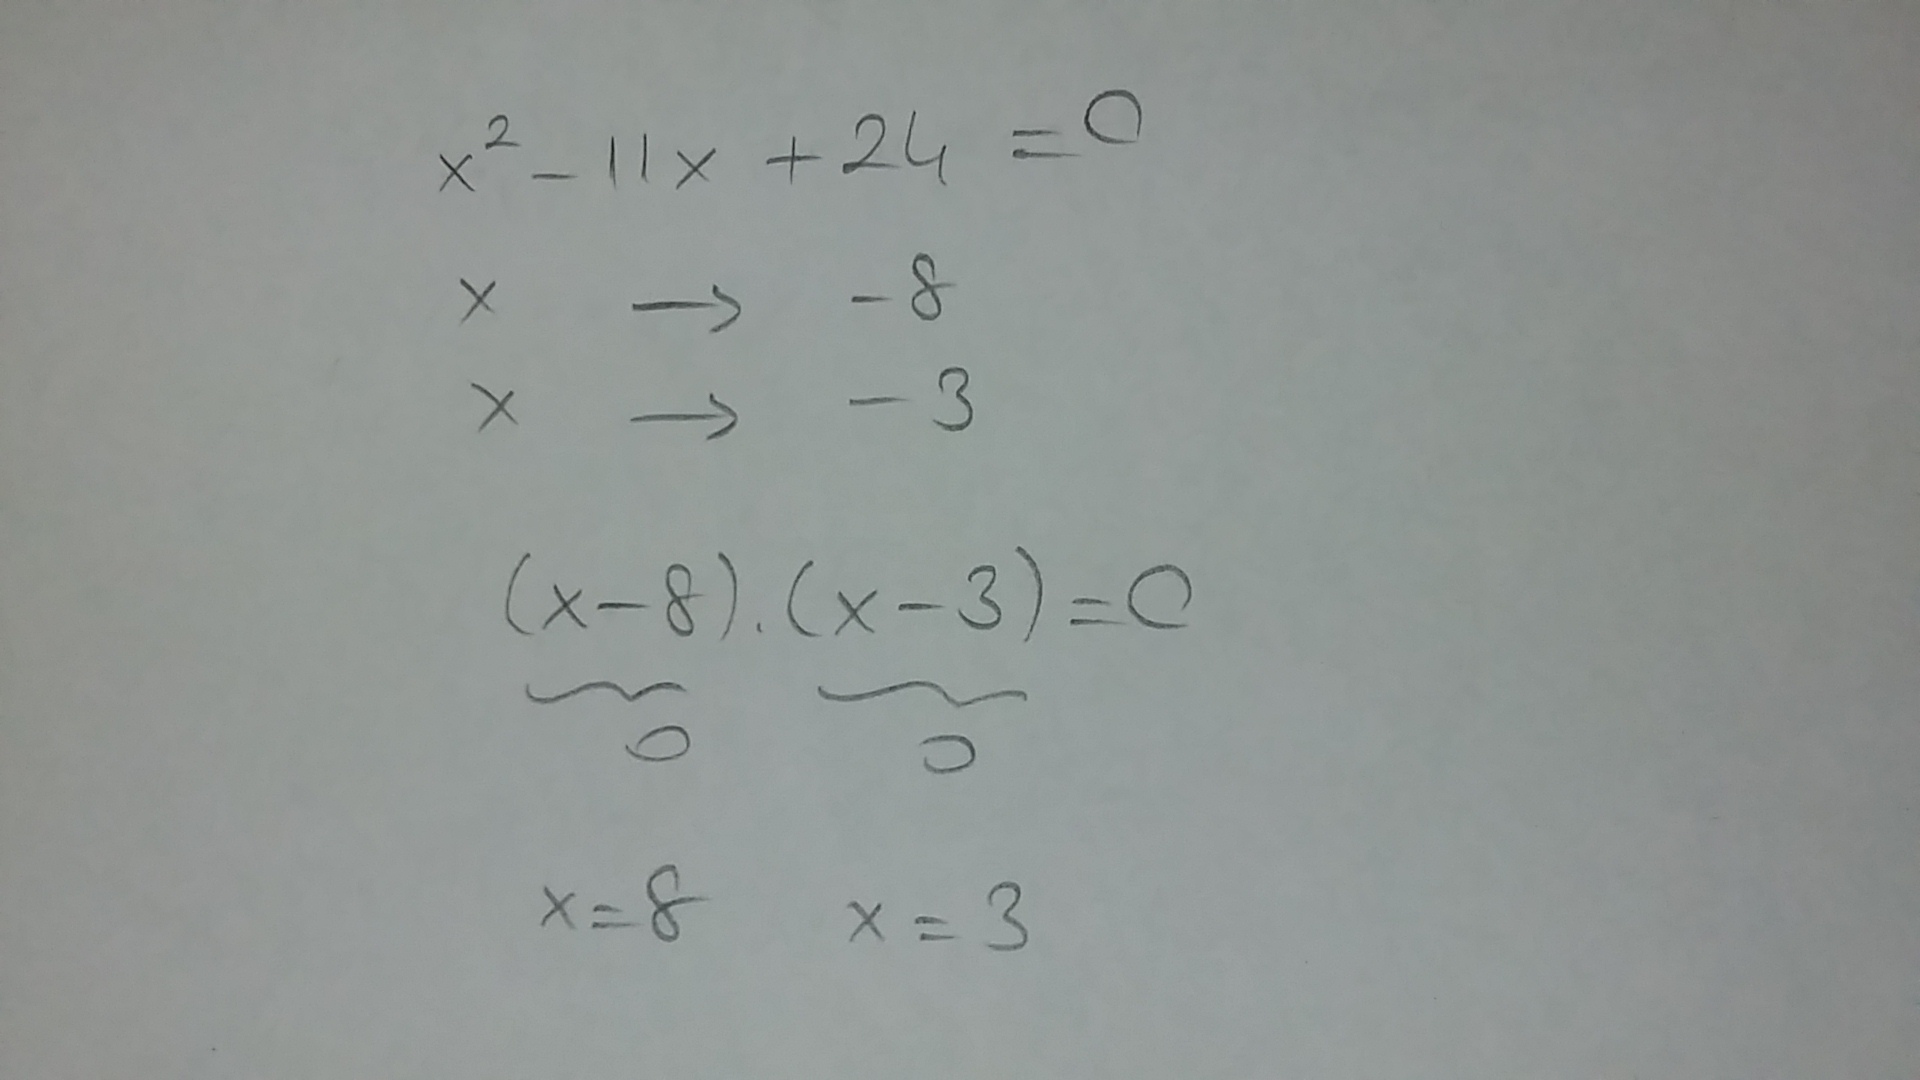 x² - 11x + 24 = 0
x → -8
x → -3
(x-8).(x-3)=0
0 0
x=8 x=3